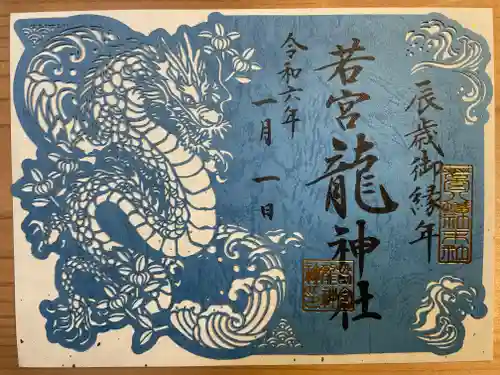 辰歳御縁年
若宮龍神社
令和六年
一月一日